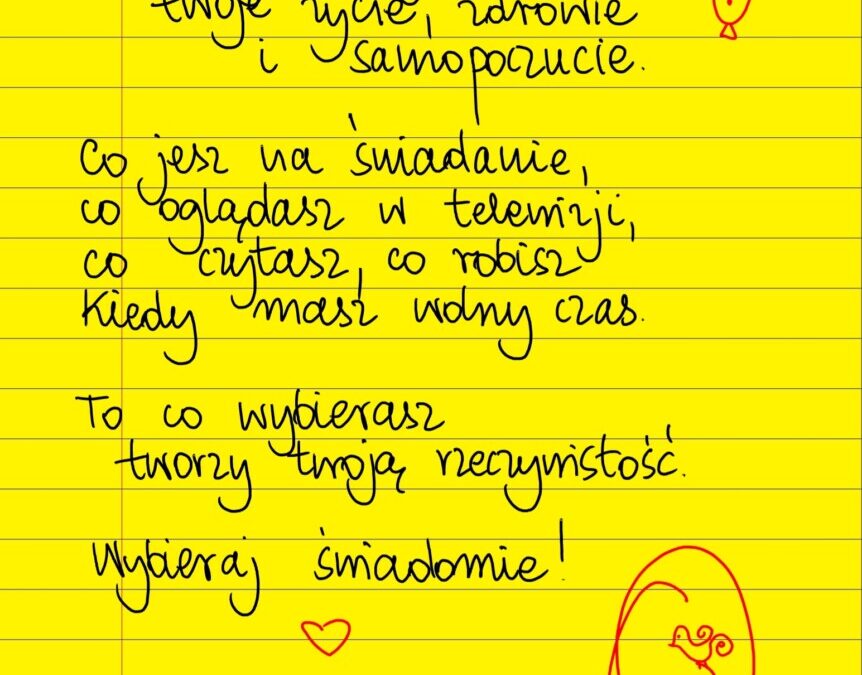 twoje życie, zdrowie
i samopoczucie.
Co jesz na śniadanie,
co oglądasz w telewizji,
co czytasz, co robisz
Kiedy masz wolny czas.
To co wybierasz
tworzy twoją rzeczywistość.
Wybieraj świadomie!